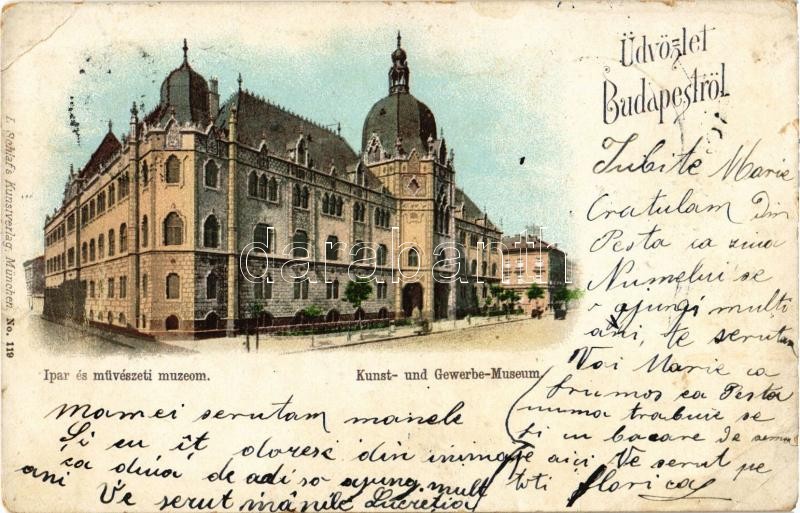 Üdvözlet
Budapestről
Iubite Marie
Gratulam din
Pesta ca ziua
Numelui se
ajungi multi
ani, te serutam
Vai Marie ca
frumos ca Pesta
numa trabuie se
fi cu bacare de sama
aici Ve serut pe
toti florica
I. Schlaf's Kunstverlag München No. 119
darabanth
Ipar és müvészeti muzeom.
Kunst- und Gewerbe-Museum.
Mamei serutam manele
Si eu it doresc din inimă
ca diua de adi so ajung mult
ani Ve serut mânile Lucreția